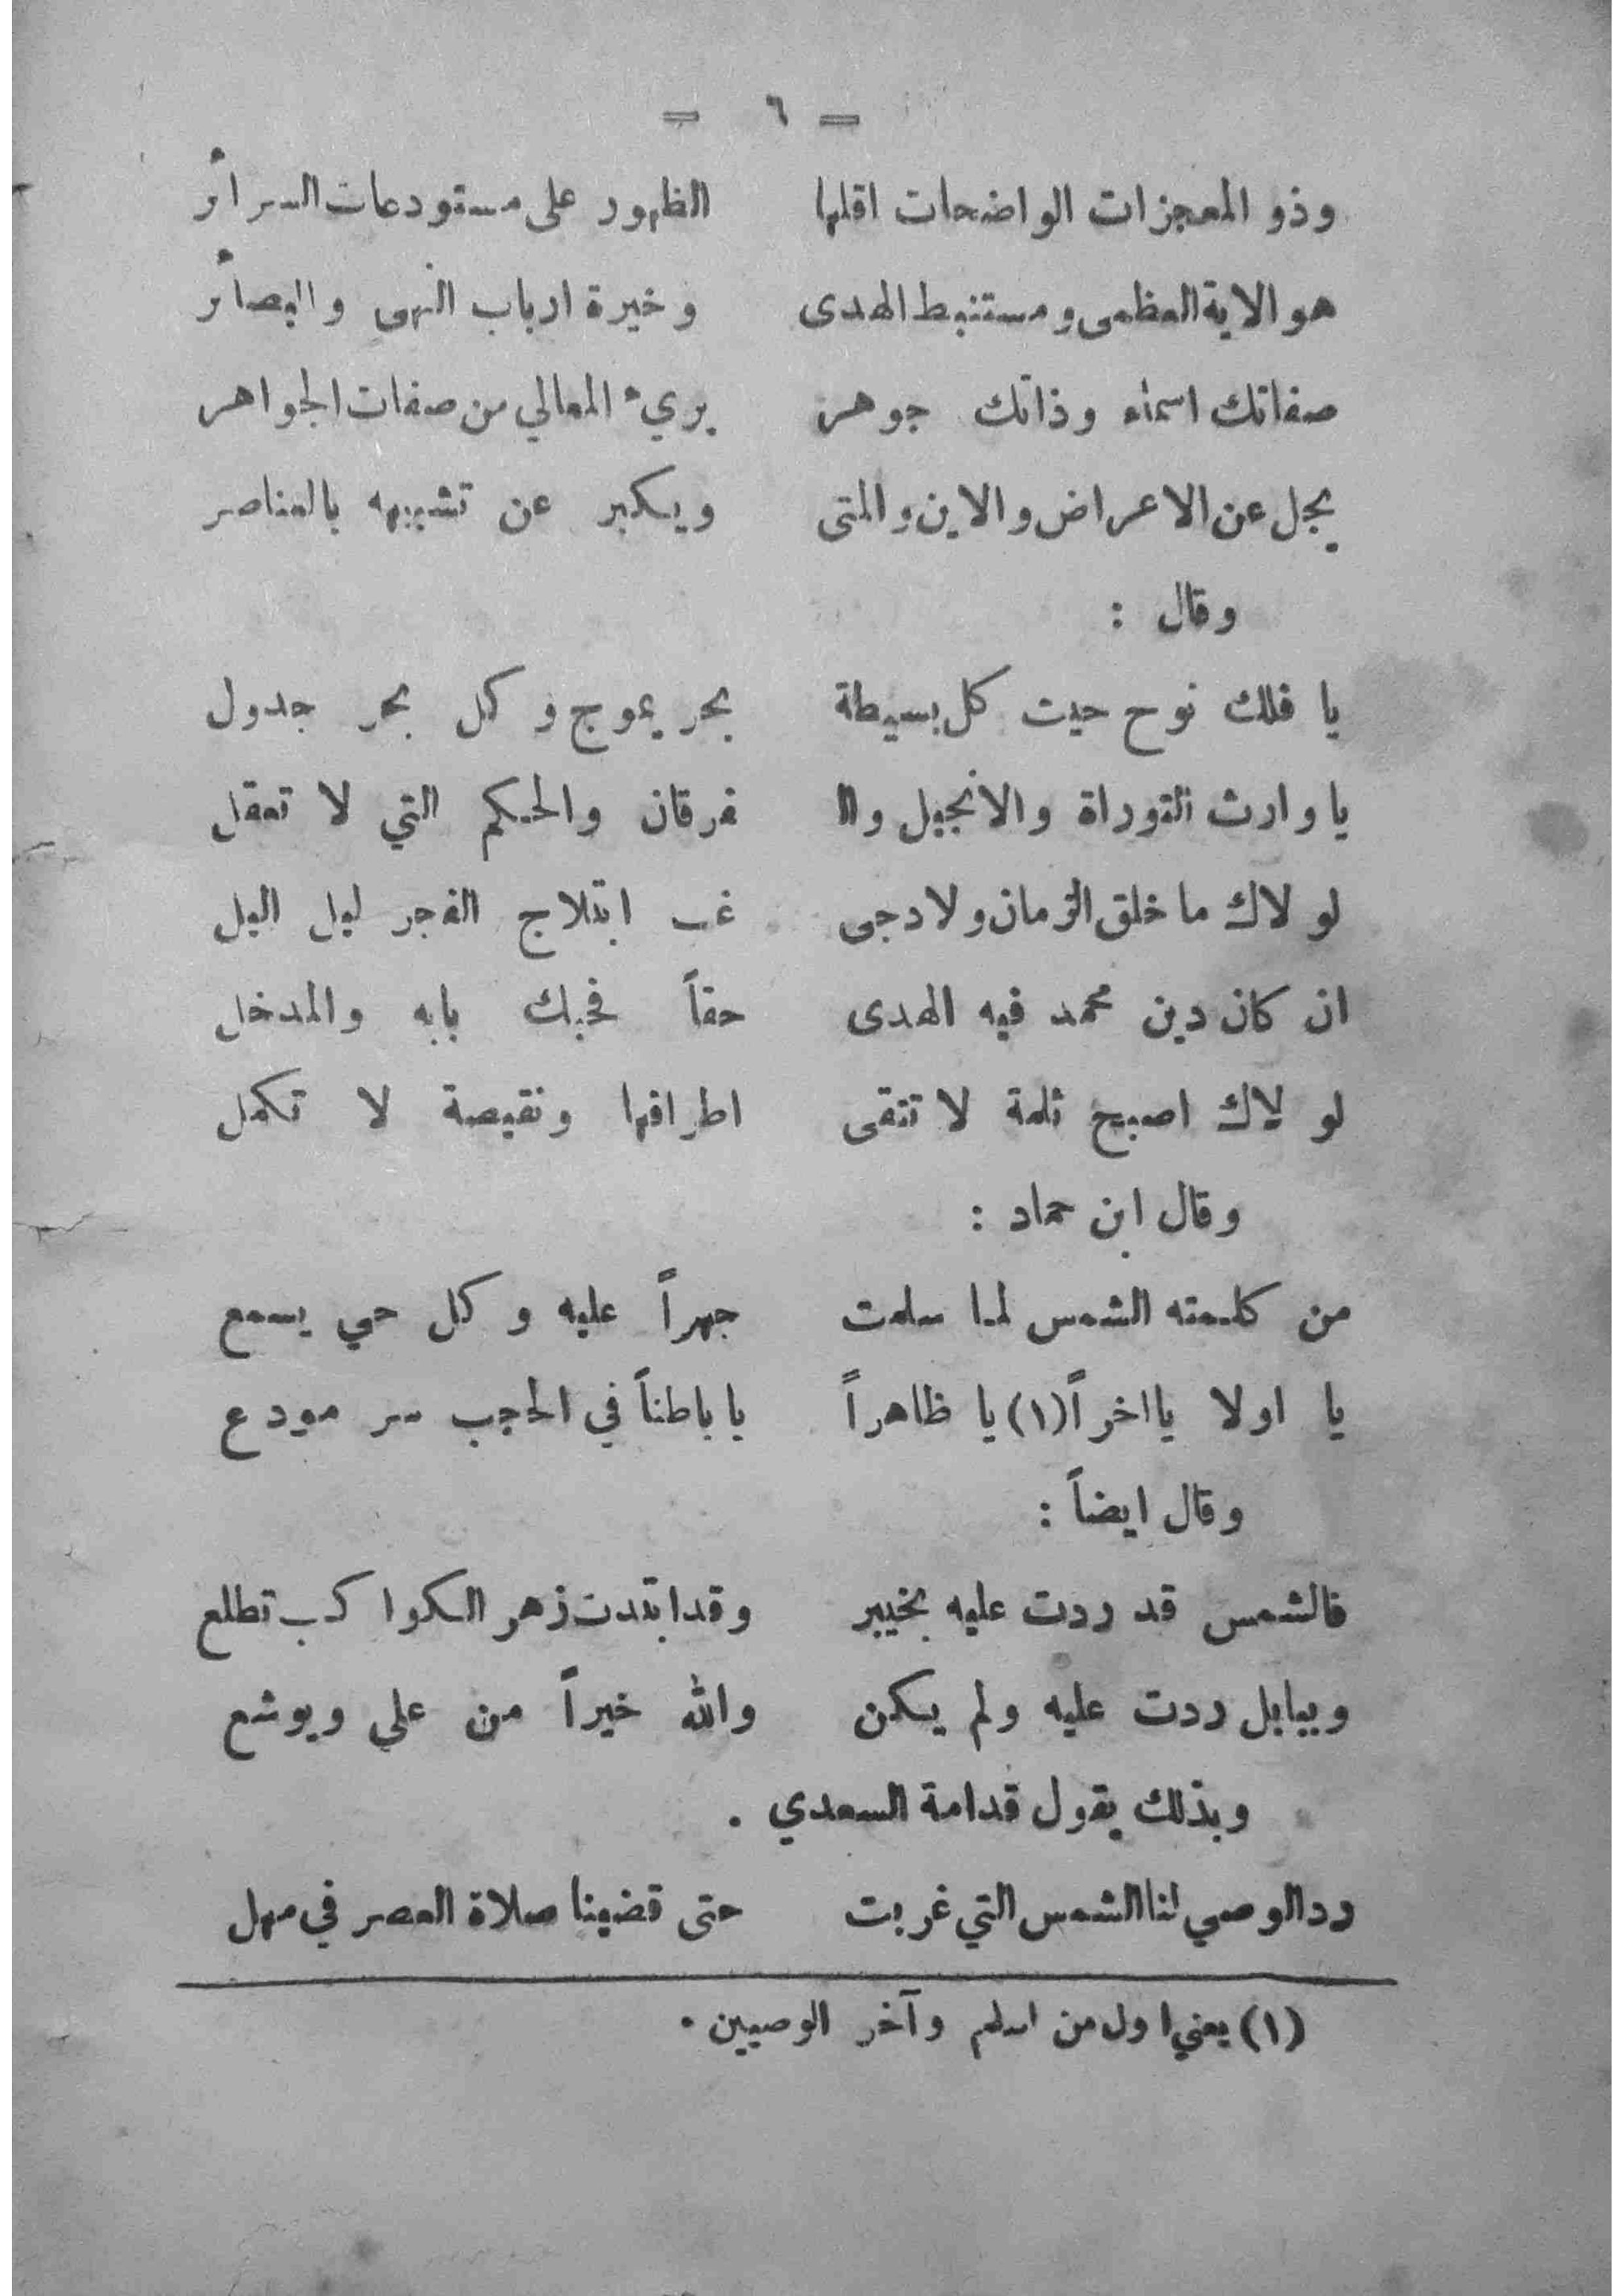 = ٦ =
وذو المعجزات الواضحات اقلها الظهور على مستودعات السرائر
هو الاية العظمى ومستنبط الهدى وخيرة ارباب النهى والبصائر
صفاتك اسماء وذاتك جوهر بريء المعالي من صفات الجواهر
يجل عن الاعراض والاين والمتى ويكبر عن تشبيهه بالعناصر
وقال :
يا فلك نوح حيث كل بسيطة بحر يموج وكل بحر جدول
يا وارث التوراة والانجيل وال فرقان والحكم التي لا تعقل
لولاك ما خلق الزمان ولا دجى غب ابتلاج الفجر ليل اليل
ان كان دين محمد فيه الهدى حقاً فحبك بابه والمدخل
لولاك اصبح ثلمة لا تتقى اطرافها ونقيصة لا تكمل
وقال ابن حماد :
من كلمته الشمس لما سلمت جهراً عليه وكل حي يسمع
يا اولا يا اخراً (١) يا ظاهراً يا باطناً في الحجب سر مودع
وقال ايضاً :
فالشمس قد ردت عليه بخيبر وقد ابتدت زهر الكواكب تطلع
وببابل ردت عليه ولم يكن والله خيراً من علي ويوشع
وبذلك يقول قدامة السعدي .
رد الوصي لنا الشمس التي غربت حتى قضينا صلاة العصر في مهل
(١) يعني اول من اسلم وآخر الوصيين .